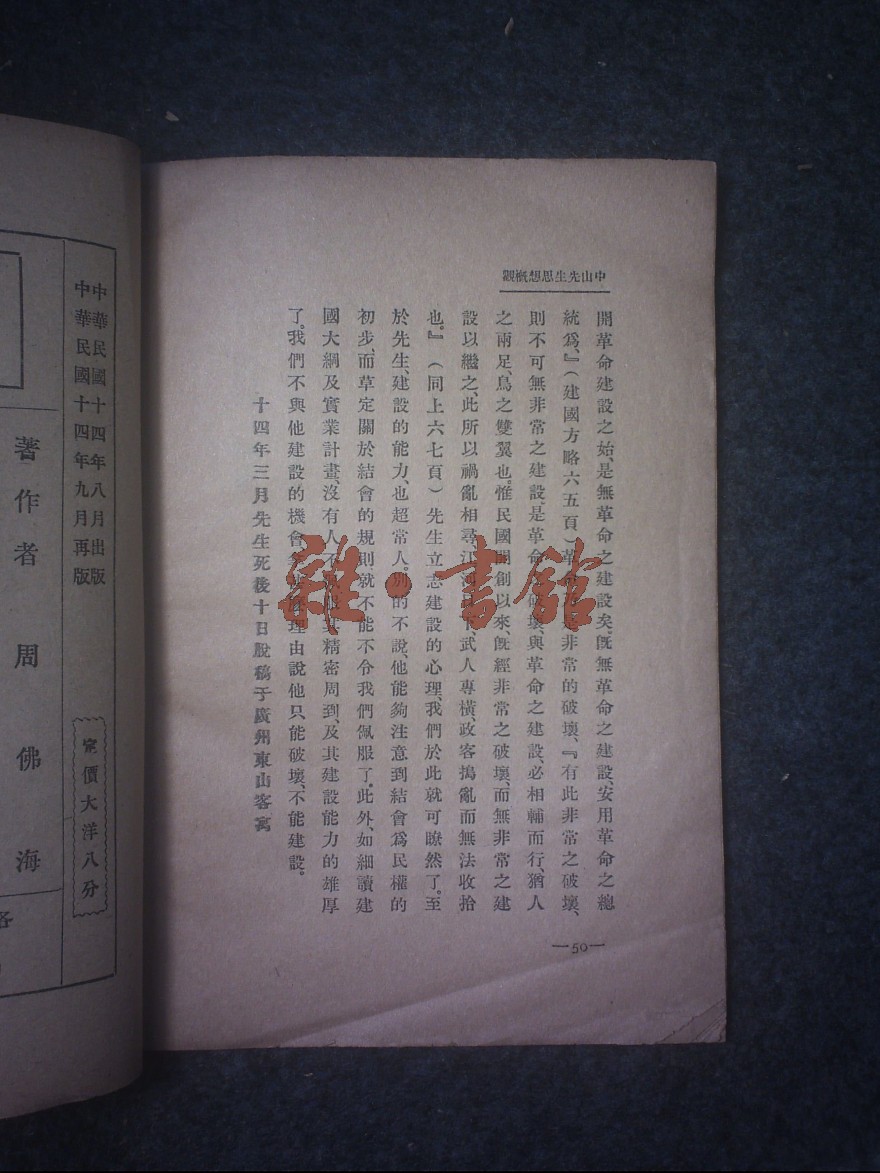 中山先生思想概觀
開革命建設之始、是無革命之建設矣。旣無革命之建設、安用革命之總
統爲、』（建國方略六五頁）革命是非常的破壞、『有此非常之破壞、
則不可無非常之建設是革命之破壞、與革命之建設、必相輔而行、猶人
之兩足、鳥之雙翼也。惟民國開創以來、旣經非常之破壞、而無非常之建
設以繼之、此所以禍亂相尋江河日下、武人專橫、政客搗亂而無法收拾
也。』（同上六七頁）先生立志建設的心理、我們於此就可瞭然了。至
於先生、建設的能力、也超常人。別的不說、他能夠注意到結會爲民權的
初步、而草定關於結會的規則就不能不令我們佩服了。此外、如細讀建
國大綱及實業計畫、沒有人不服其精密周到、及其建設能力的雄厚
了。我們不與他建設的機會理由說他只能破壞、不能建設。
十四年三月先生死後十日脫稿于廣州東山客寓
—50—
雜·書館
中華民國十四年八月出版
中華民國十四年九月再版
定價大洋八分
著作者 周佛海
各